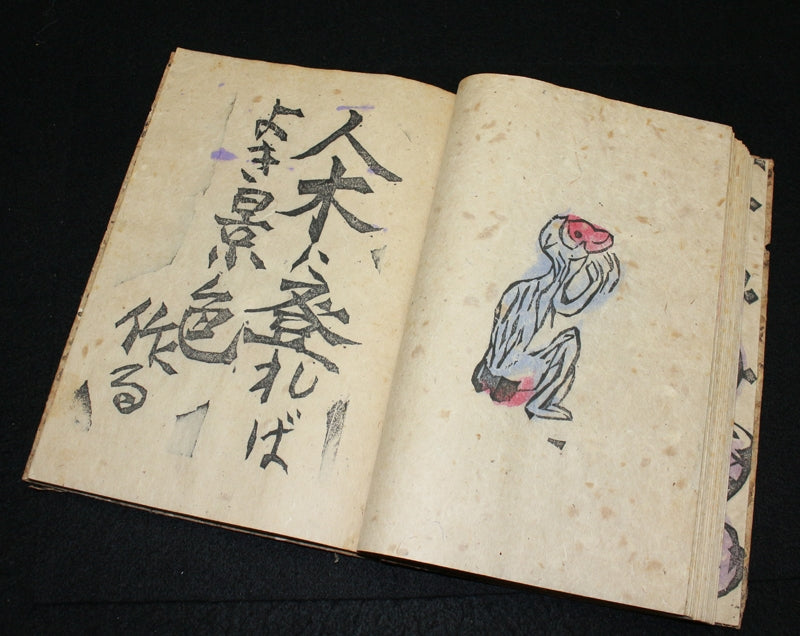 人木登れば
よき景色
作る